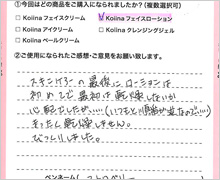 ①今回はどの商品をご購入になられましたか?(複数選択可)
□Koiinaフェイスクリーム □Koiinaフェイスローション
□Koiinaアイクリーム □Koiinaクレンジングジェル
□Koiinaピールクリーム
②ご使用になられたご感想・ご意見をお願い致します。
スキンケアの最後にローションは
初めてで最初は乾燥しないか
心配でしたが…(いつもと順番が逆なので…)
まったく乾燥しません。
びっくりしました。
ペンネーム(